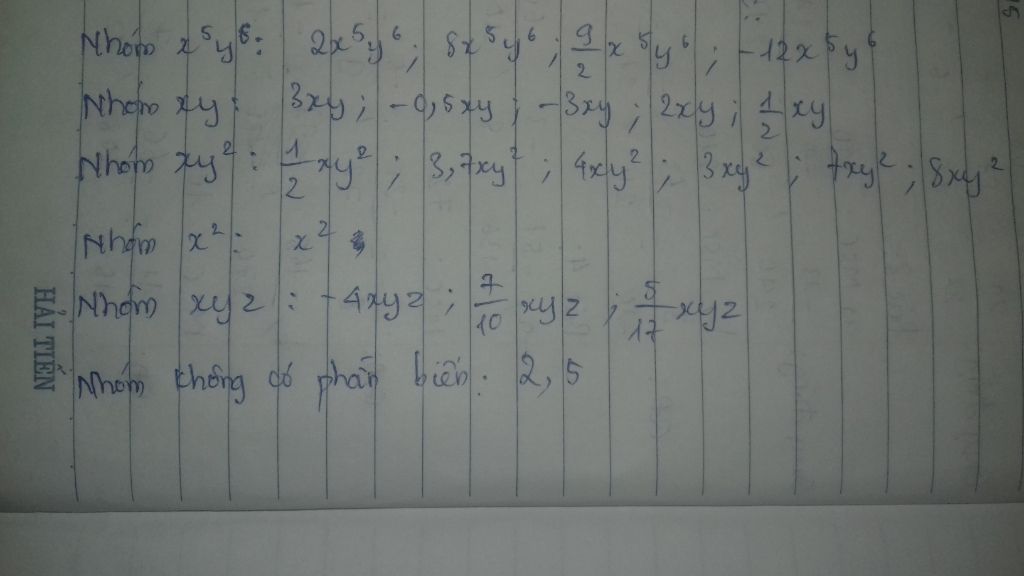 Nhóm x⁵y⁶: 2x⁵y⁶; 8x⁵y⁶; 9/2 x⁵y⁶; -12x⁵y⁶
Nhóm xy: 3xy; -0,5xy; -3xy; 2xy; 1/2 xy
Nhóm xy²: 1/2 xy²; 3,7xy²; 4xy²; 3xy²; 7xy²; 8xy²
Nhóm x²: x²
Nhóm xyz: -4xyz; 7/10 xyz; 5/17 xyz
Nhóm không có phần biến: 2,5
HẢI TIẾN